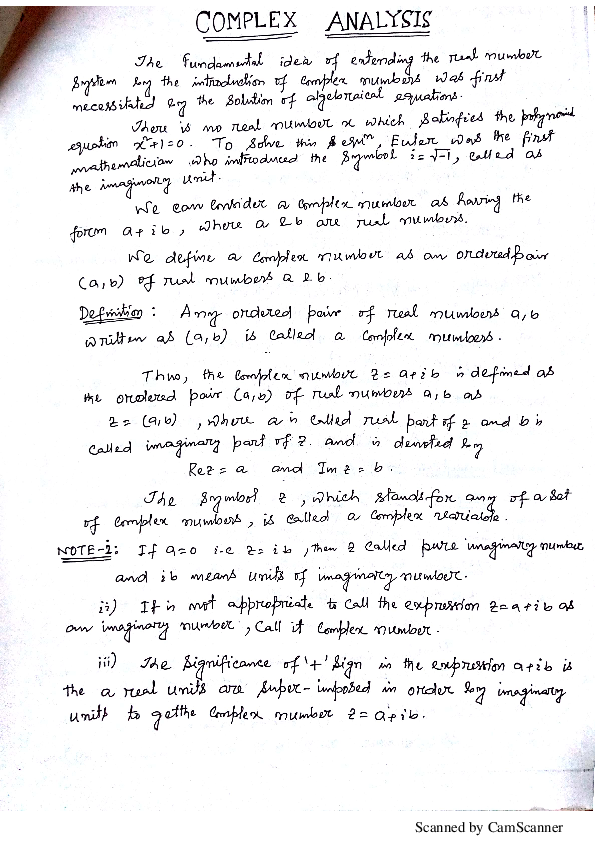 COMPLEX ANALYSIS
The Fundamental idea of extending the real number
System by the introduction of Complex numbers was first
necessitated by the solution of algebraical equations.
There is no real number x which satisfies the polynomial
equation x²+1=0. To solve this equⁿ, Euler was the first
mathematician who introduced the symbol i=√-1, called as
the imaginary unit.
We can consider a complex number as having the
form a+ib, where a & b are real numbers.
We define a complex number as an ordered pair
(a,b) of real numbers a & b.
Definition: Any ordered pair of real numbers a,b
written as (a,b) is called a complex numbers.
Thus, the complex number z = a+ib is defined as
the ordered pair (a,b) of real numbers a,b as
z = (a,b), where a is called real part of z and b is
called imaginary part of z. and is denoted by
Re z = a and Im z = b.
The Symbol z, which stands for any of a set
of complex numbers, is called a complex variable.
NOTE-i: If a=0 i.e z= ib, then z called pure imaginary number
and ib means units of imaginary number.
ii) It is not appropriate to call the expression z=a+ib as
an imaginary number, call it complex number.
iii) The Significance of '+' sign in the expression a+ib is
the a real units are super-imposed in order by imaginary
units to get the complex number z = a+ib.
Scanned by CamScanner